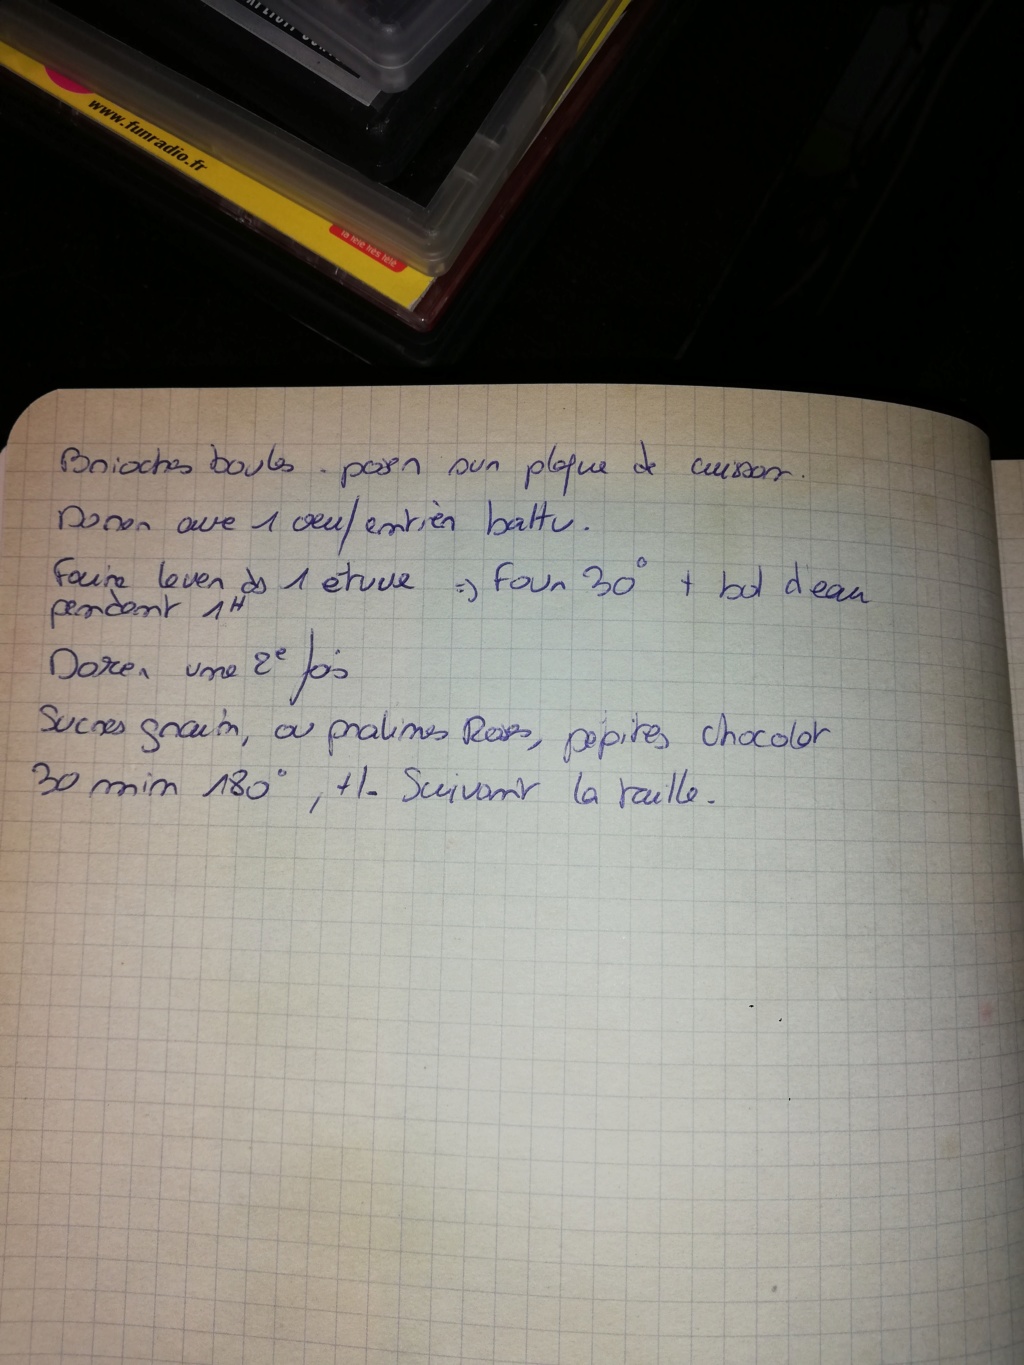 www.funradio.fr
la télé très télé
Brioches boules . poser sur plaque de cuisson.
Dorer avec 1 oeuf entièr battu.
Faire lever ds 1 étuve => Four 30° + bol d'eau
pendant 1H
Dorer une 2e fois
Sucres grain, ou pralines Roses, pépites chocolat
30 min 180°, +/- Suivant la taille.